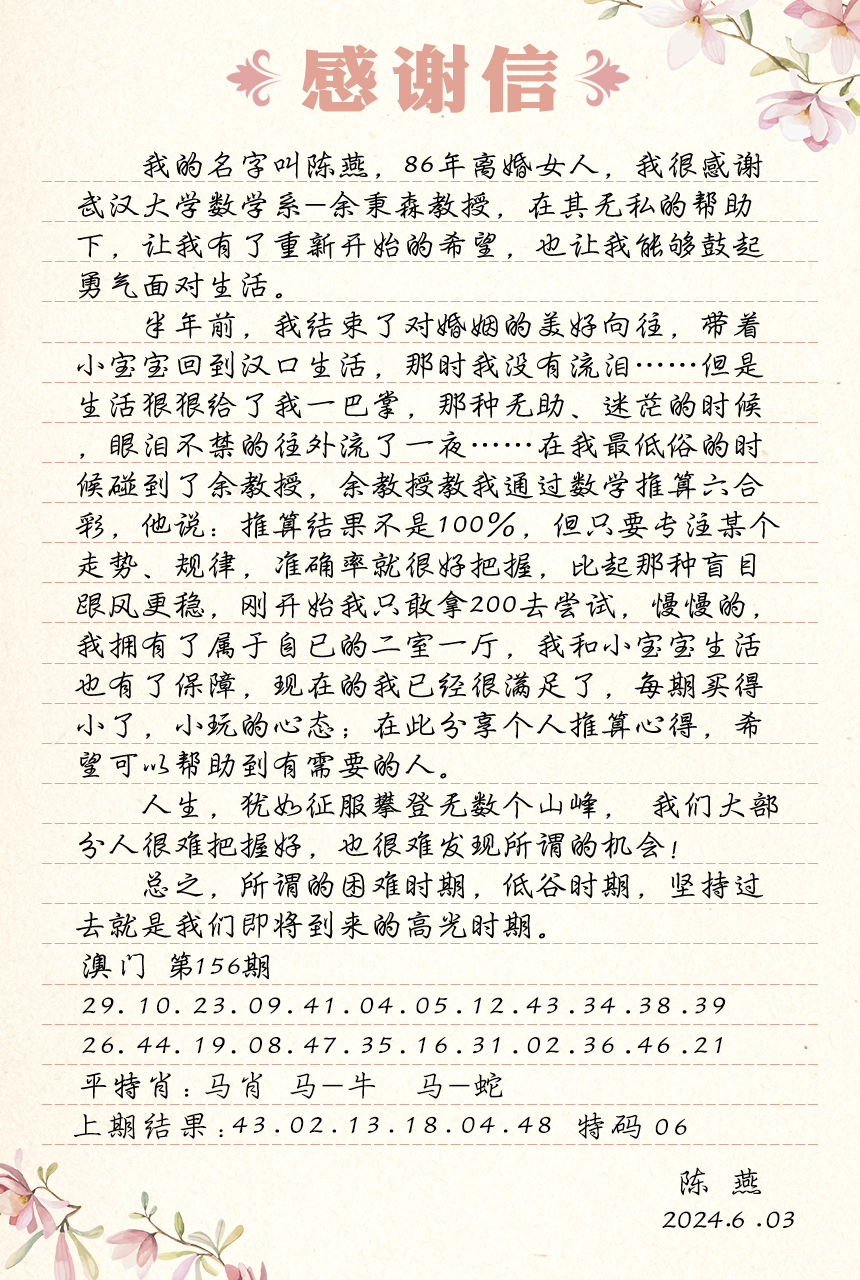 感谢信
我的名字叫陈燕，86年离婚女人，我很感谢
武汉大学数学系—余秉森教授，在其无私的帮助
下，让我有了重新开始的希望，也让我能够鼓起
勇气面对生活。
半年前，我结束了对婚姻的美好向往，带着
小宝宝回到汉口生活，那时我没有流泪……但是
生活狠狠给了我一巴掌，那种无助、迷茫的时候
，眼泪不禁的往外流了一夜……在我最低俗的时
候碰到了余教授，余教授教我通过数学推算六合
彩，他说：推算结果不是100%，但只要专注某个
走势、规律，准确率就很好把握，比起那种盲目
跟风更稳，刚开始我只敢拿200去尝试，慢慢的，
我拥有了属于自已的二室一厅，我和小宝宝生活
也有了保障，现在的我已经很满足了，每期买得
小了，小玩的心态；在此分享个人推算心得，希
望可以帮助到有需要的人。
人生，犹如征服攀登无数个山峰， 我们大部
分人很难把握好，也很难发现所谓的机会！
总之，所谓的困难时期，低谷时期，坚持过
去就是我们即将到来的高光时期。
澳门 第156期
29.10.23.09.41.04.05.12.43.34.38.39
26.44.19.08.47.35.16.31.02.36.46.21
平特肖：马肖 马—牛 马—蛇
上期结果：43.02.13.18.04.48 特码 06
陈 燕
2024.6.03